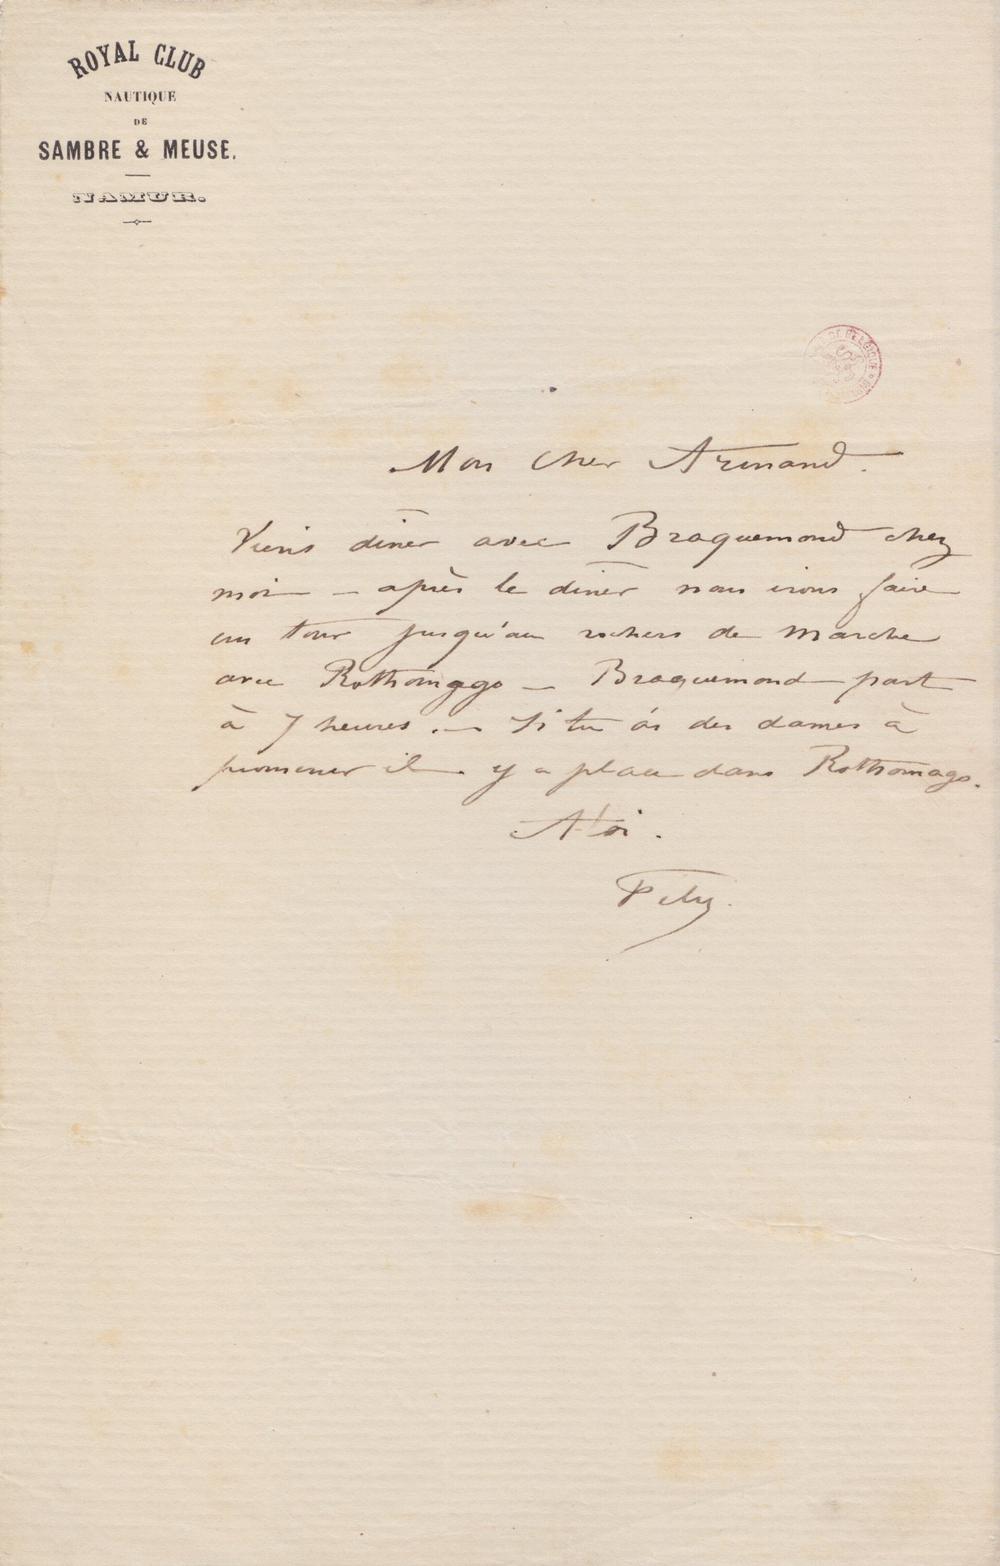 ROYAL CLUB
NAUTIQUE
DE
SAMBRE & MEUSE.
NAMUR.
DE BELGIQUE
Mon Cher Armand.
Viens dîner avec Braquemond chez
moi — après le dîner nous irons faire
un tour jusqu'au rochers de Marche
avec Rothomago — Braquemond part
à 7 heures. — Si tu as des dames à
promener il y a place dans Rothomago.
A toi.
Fély.